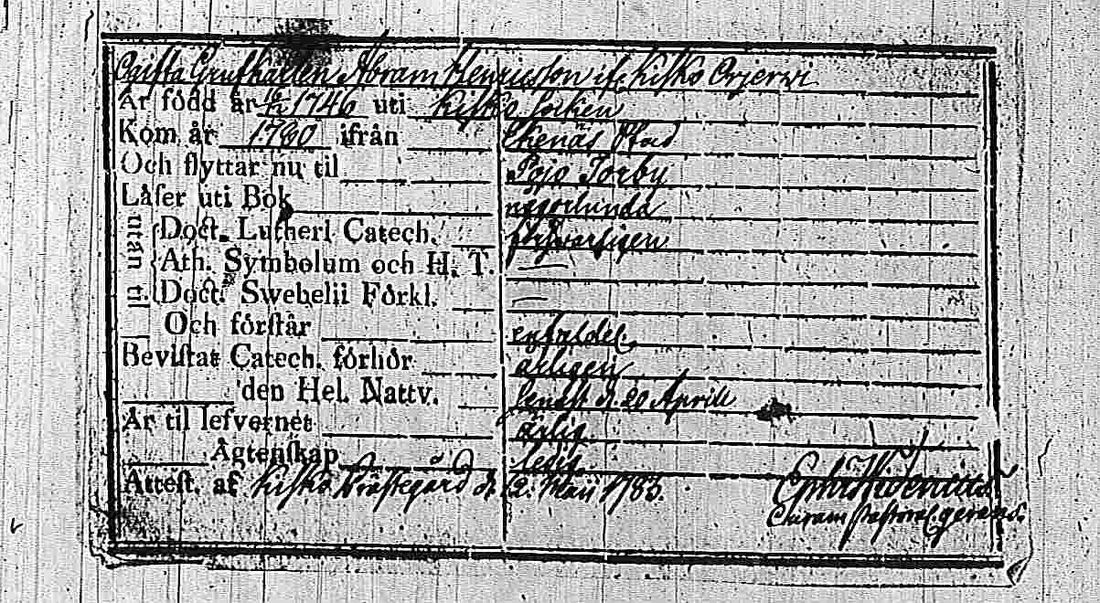 Ogifta Grufkarlen Abram Henricsson if. Kisko Orjerwi
Är född år 1746 uti Kisko Socken
Kom år 1780 ifrån Ekenäs Stad
Och flyttar nu til Pojo Torby
Låser uti Bok någorlunda
utan til Doct. Lutheri Catech. förswarligen
Ath. Symbolum och H. T. —
Doct. Swebelii Förkl. —
Och förstår enfaldel.
Bevistat Catech. förhör årligen
den Hel. Nattv. senast d. 20 Aprill
Är til lefvernet ärlig
Ägtenskap ledig.
Attest. af Kisko Prästegård d. 12. Maii 1783.
Curam pastoral. gerens.